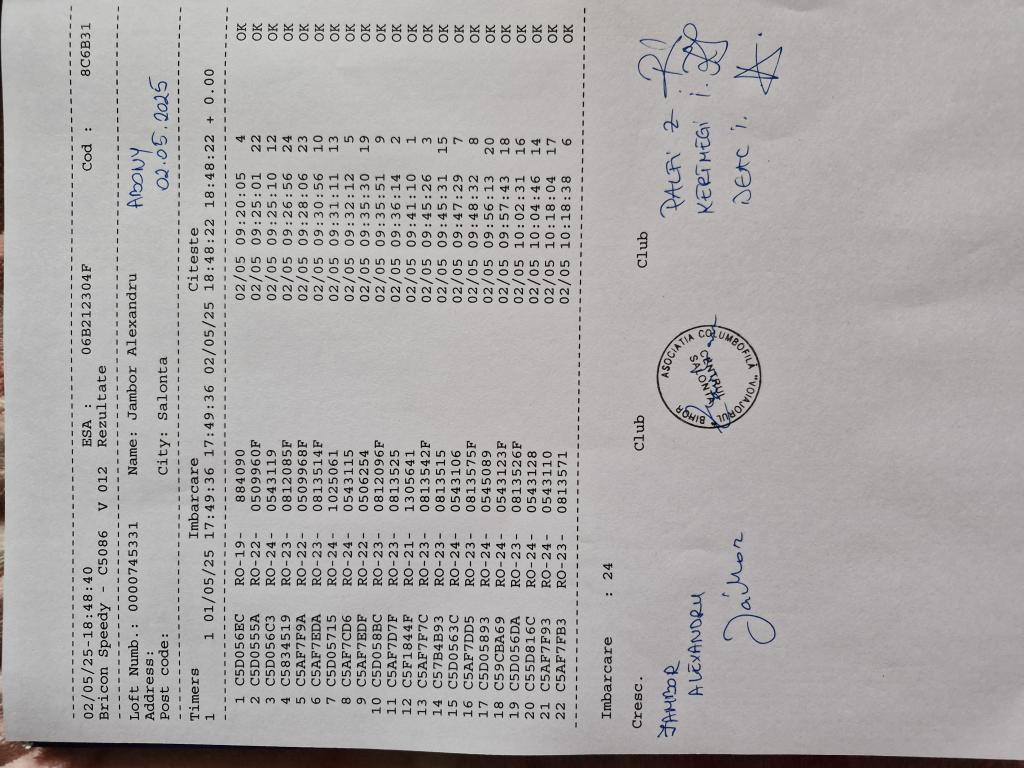 02/05/25-18:48:40 ESA : 06B212304F Cod : 8C6B31
Bricon Speedy - C5086 V 012 Rezultate
Loft Numb.: 0000745331 Name: Jambor Alexandru ADONY
Address: 02.05.2025
Post code: City: Salonta
Timers Imbarcare Citeste
1 1 01/05/25 17:49:36 17:49:36 02/05/25 18:48:22 18:48:22 + 0.00
1 C5D056EC RO-19- 884090 02/05 09:20:05 4 OK
2 C5D0555A RO-22- 0509960F 02/05 09:25:01 22 OK
3 C5D056C3 RO-24- 0543119 02/05 09:25:10 12 OK
4 C5834519 RO-23- 0812085F 02/05 09:26:56 24 OK
5 C5AF7F9A RO-22- 0509968F 02/05 09:28:06 23 OK
6 C5AF7EDA RO-23- 0813514F 02/05 09:30:56 10 OK
7 C5D05715 RO-24- 1025061 02/05 09:31:11 13 OK
8 C5AF7CD6 RO-24- 0543115 02/05 09:32:12 5 OK
9 C5AF7EDF RO-22- 0506254 02/05 09:35:30 19 OK
10 C5D058BC RO-23- 0812096F 02/05 09:35:51 9 OK
11 C5AF7D7F RO-23- 0813525 02/05 09:36:14 2 OK
12 C5F1844F RO-21- 1305641 02/05 09:41:10 1 OK
13 C5AF7F7C RO-23- 0813542F 02/05 09:45:26 3 OK
14 C57B4B93 RO-23- 0813515 02/05 09:45:31 15 OK
15 C5D0563C RO-24- 0543106 02/05 09:47:29 7 OK
16 C5AF7DD5 RO-23- 0813575F 02/05 09:48:32 8 OK
17 C5D05893 RO-24- 0545089 02/05 09:56:13 20 OK
18 C59CBA69 RO-24- 0543123F 02/05 09:57:43 18 OK
19 C5D056DA RO-23- 0813526F 02/05 10:02:31 16 OK
20 C55D816C RO-24- 0543128 02/05 10:04:46 14 OK
21 C5AF7F93 RO-24- 0543110 02/05 10:18:04 17 OK
22 C5AF7FB3 RO-23- 0813571 02/05 10:18:38 6 OK
Imbarcare : 24
Cresc. Club Club
JAMBOR PALFI Z
ALEXANDRU KERIMEGI I.
Jambor DEAC I.
ASOCIATIA COLUMBOFILA "VOIAJORUL" BIHOR
CENTRUL
SALONTA